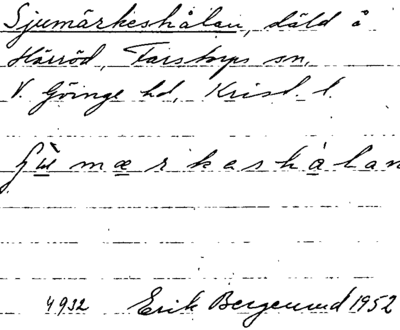 Sjumärkeshålan, däld å
Härröd, Farstorps sn,
V. Göinge hd, Krist. l.
mærkeshålan
4932 Erik Bergelund 1952